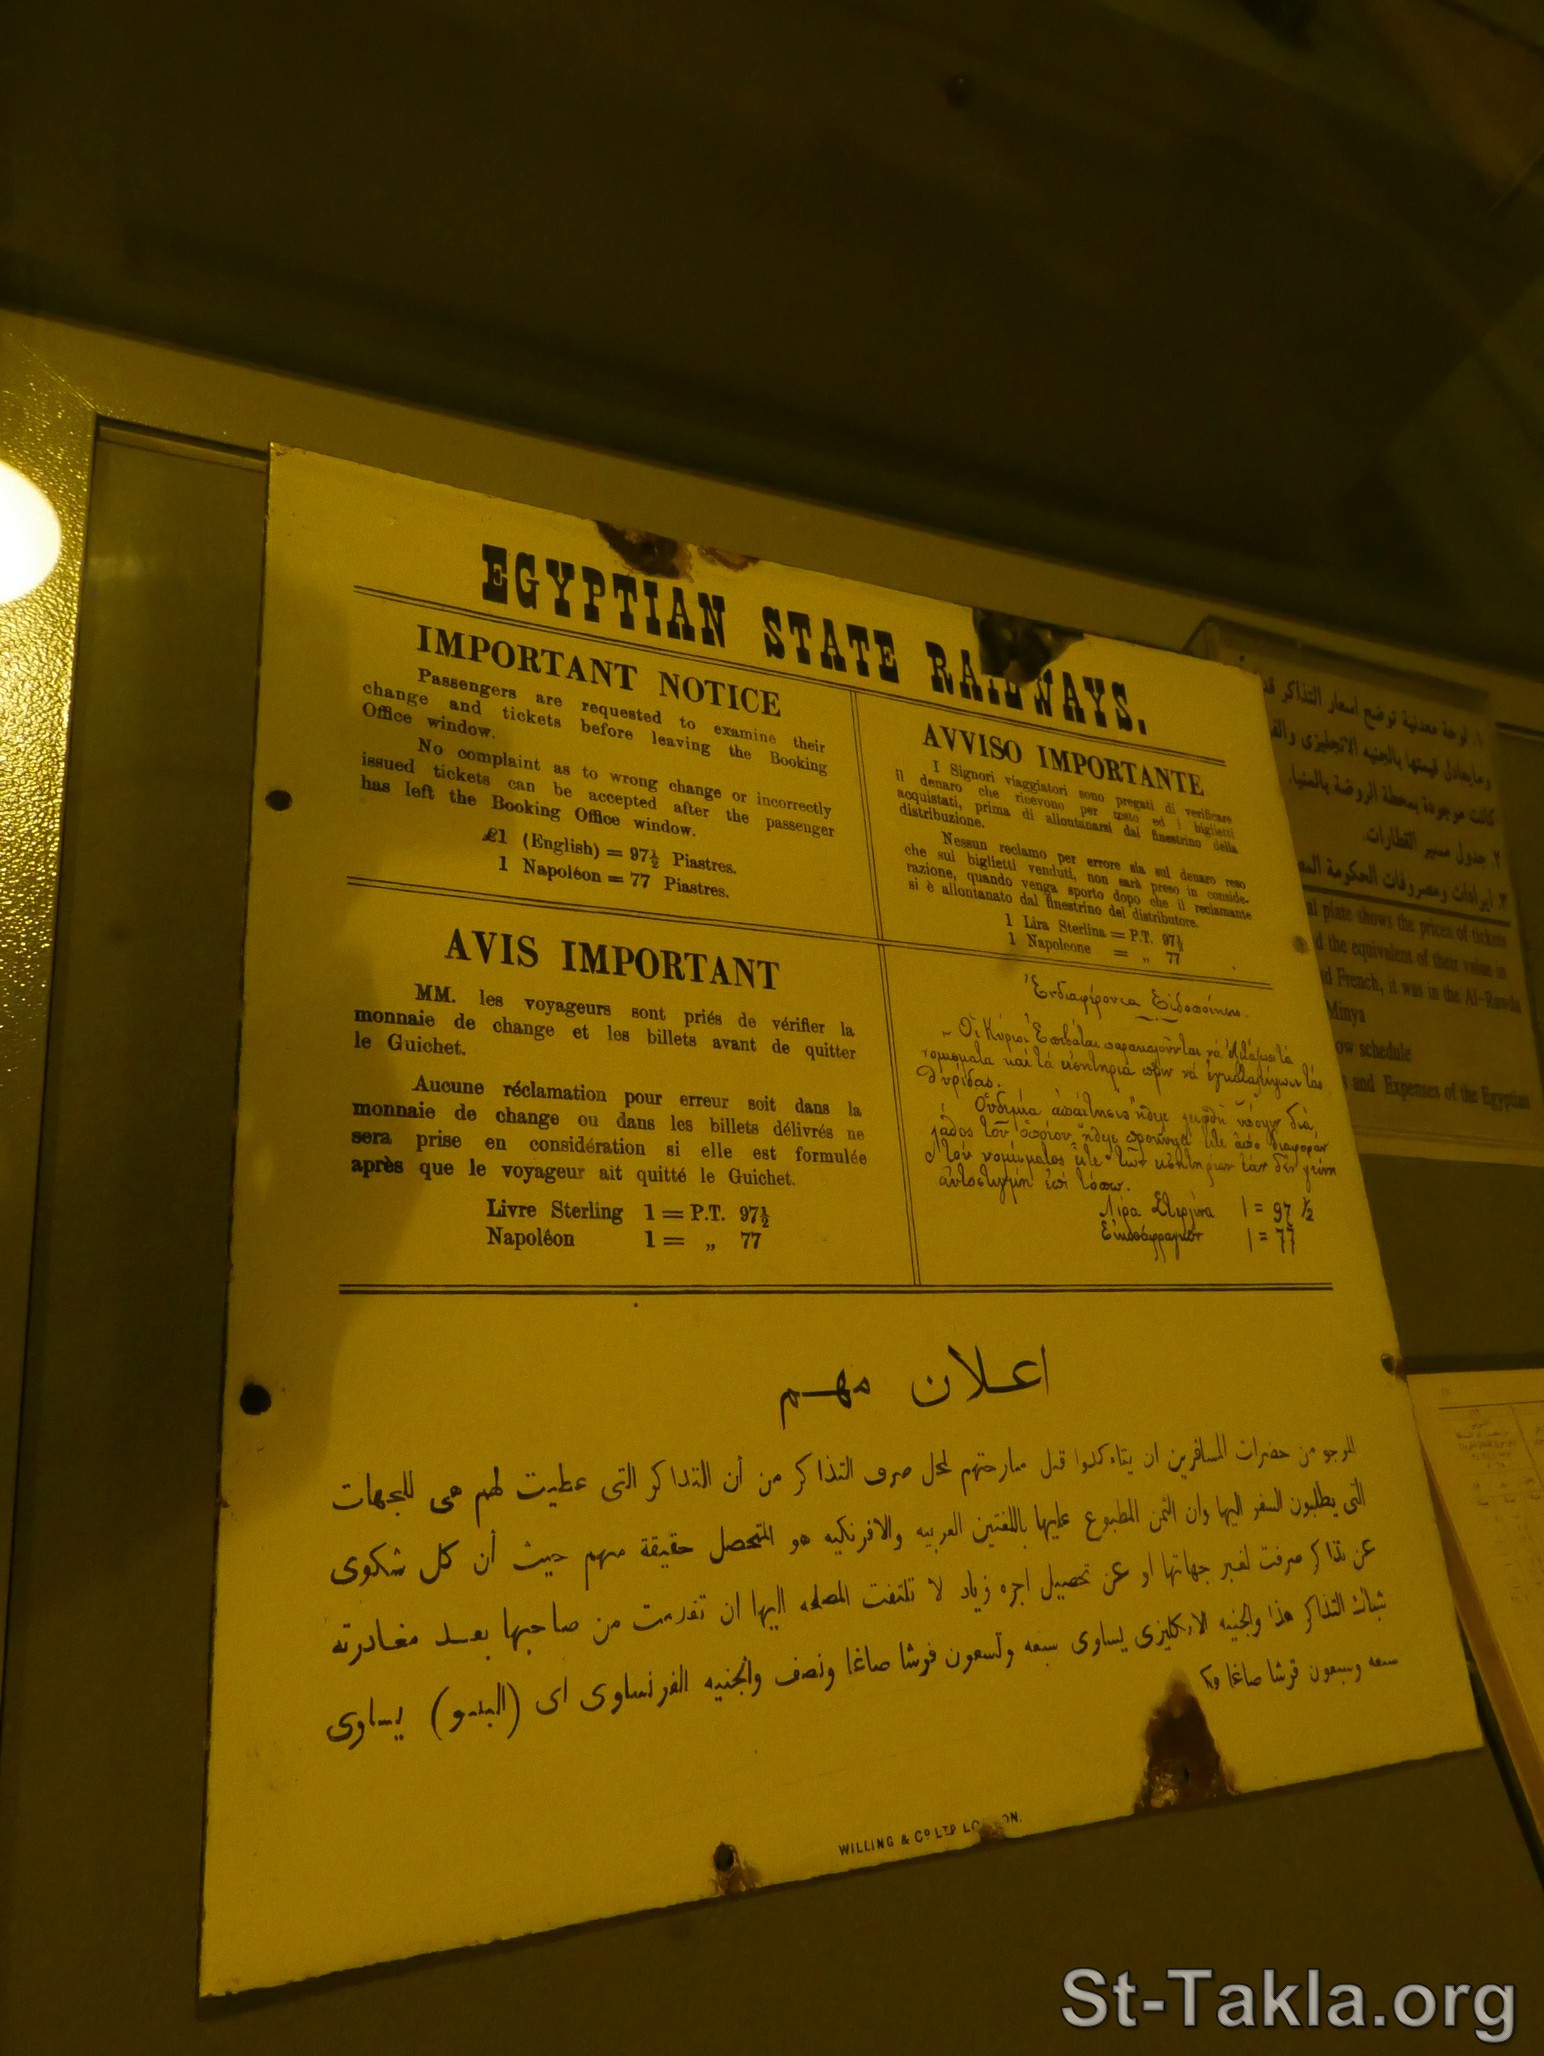 EGYPTIAN STATE RAILWAYS.
IMPORTANT NOTICE
Passengers are requested to examine their
change and tickets before leaving the Booking
Office window.
No complaint as to wrong change or incorrectly
issued tickets can be accepted after the passenger
has left the Booking Office window.
£1 (English) = 97½ Piastres.
1 Napoléon = 77 Piastres.
AVVISO IMPORTANTE
I Signori viaggiatori sono pregati di verificare
il denaro che ricevono per resto ed i biglietti
acquistati, prima di allontanarsi dal finestrino della
distribuzione.
Nessun reclamo per errore sia sul denaro reso
che sui biglietti venduti, non sarà preso in conside-
razione, quando venga sporto dopo che il reclamante
si è allontanato dal finestrino del distributore.
1 Lira Sterlina = P.T. 97½
1 Napoleone = „ 77
AVIS IMPORTANT
MM. les voyageurs sont priés de vérifier la
monnaie de change et les billets avant de quitter
le Guichet.
Aucune réclamation pour erreur soit dans la
monnaie de change ou dans les billets délivrés ne
sera prise en considération si elle est formulée
après que le voyageur ait quitté le Guichet.
Livre Sterling 1 = P.T. 97½
Napoléon 1 = „ 77
Οἱ Κύριοι Ἐπιβάται παρακαλοῦνται νὰ
νομίσματα καὶ τὰ εἰσητήρια πρὶν νὰ τὰς
θυρίδας.
Λίρα Στερλίνα 1 = 97 ½
1 = 77
اعلان مهم
المرجو من حضرات المسافرين ان يتاءكدوا قبل مبارحتهم لمحل صرف التذاكر من أن التذاكر التى عطيت لهم هى للجهات
التى يطلبون السفر اليها وان الثمن المطبوع عليها باللغتين العربيه والافرنكيه هو المتحصل حقيقة منهم حيث أن كل شكوى
عن تذاكر صرفت لغير جهاتها او عن تحصيل اجره زياد لا تلتفت المصلحه اليها ان تقدمت من صاحبها بعد مغادرته
شباك التذاكر هذا والجنيه الانكليزى يساوى سبعه وتسعون قرشا صاغا ونصف والجنيه الفرنساوى اى (البنتو) يساوى
سبعه وسبعون قرشا صاغا
WILLING & Co LTD LONDON.
١. لوحة معدنية توضح اسعار التذاكر
ومايعادل قيمتها بالجنيه الانجليزى
كانت موجودة بمحطة الروضة بالمنيا.
٢. جدول مسير القطارات.
٣. ايرادات ومصروفات الحكومة
plate shows the prices of tickets
the equivalent of their value in
French, it was in the Al-Rawda
Minya
schedule
and Expenses of the Egyptian
St-Takla.org